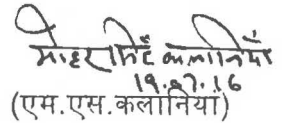 मोहरसिंह कलानियाँ
19.07.16
(एम.एस.कलानियां)